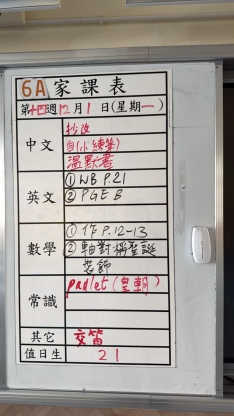 6A 家課表
第十四週12月1日(星期一)
中文
抄改
自(小練筆)
溫默書
英文
① WB P.21
② PGE B
數學
① 作 P.12-13
② 軸對稱聖誕
裝飾
常識
padlet (皇朝)
其它
交笛
值日生
21